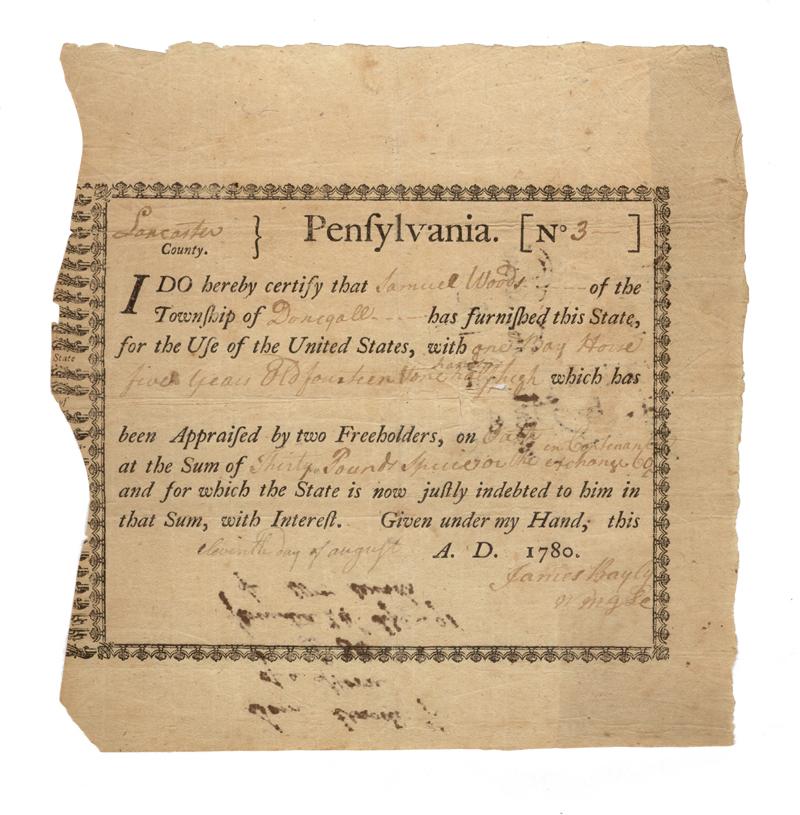 Lancaster } Penſylvania. [No 3 ]
County.
I DO hereby certify that Samuel Woods of the
Townſhip of Donegall has furniſhed this State,
for the Uſe of the United States, with one Bay Horse
hands
five Years Old fourteen & one half high which has
been Appraiſed by two Freeholders, on Oath
at the Sum of Thirty Pounds Specie or the exchange 60
and for which the State is now juſtly indebted to him in
that Sum, with Intereſt. Given under my Hand, this
eleventh day of august A. D. 1780.
James Bayly
State
of